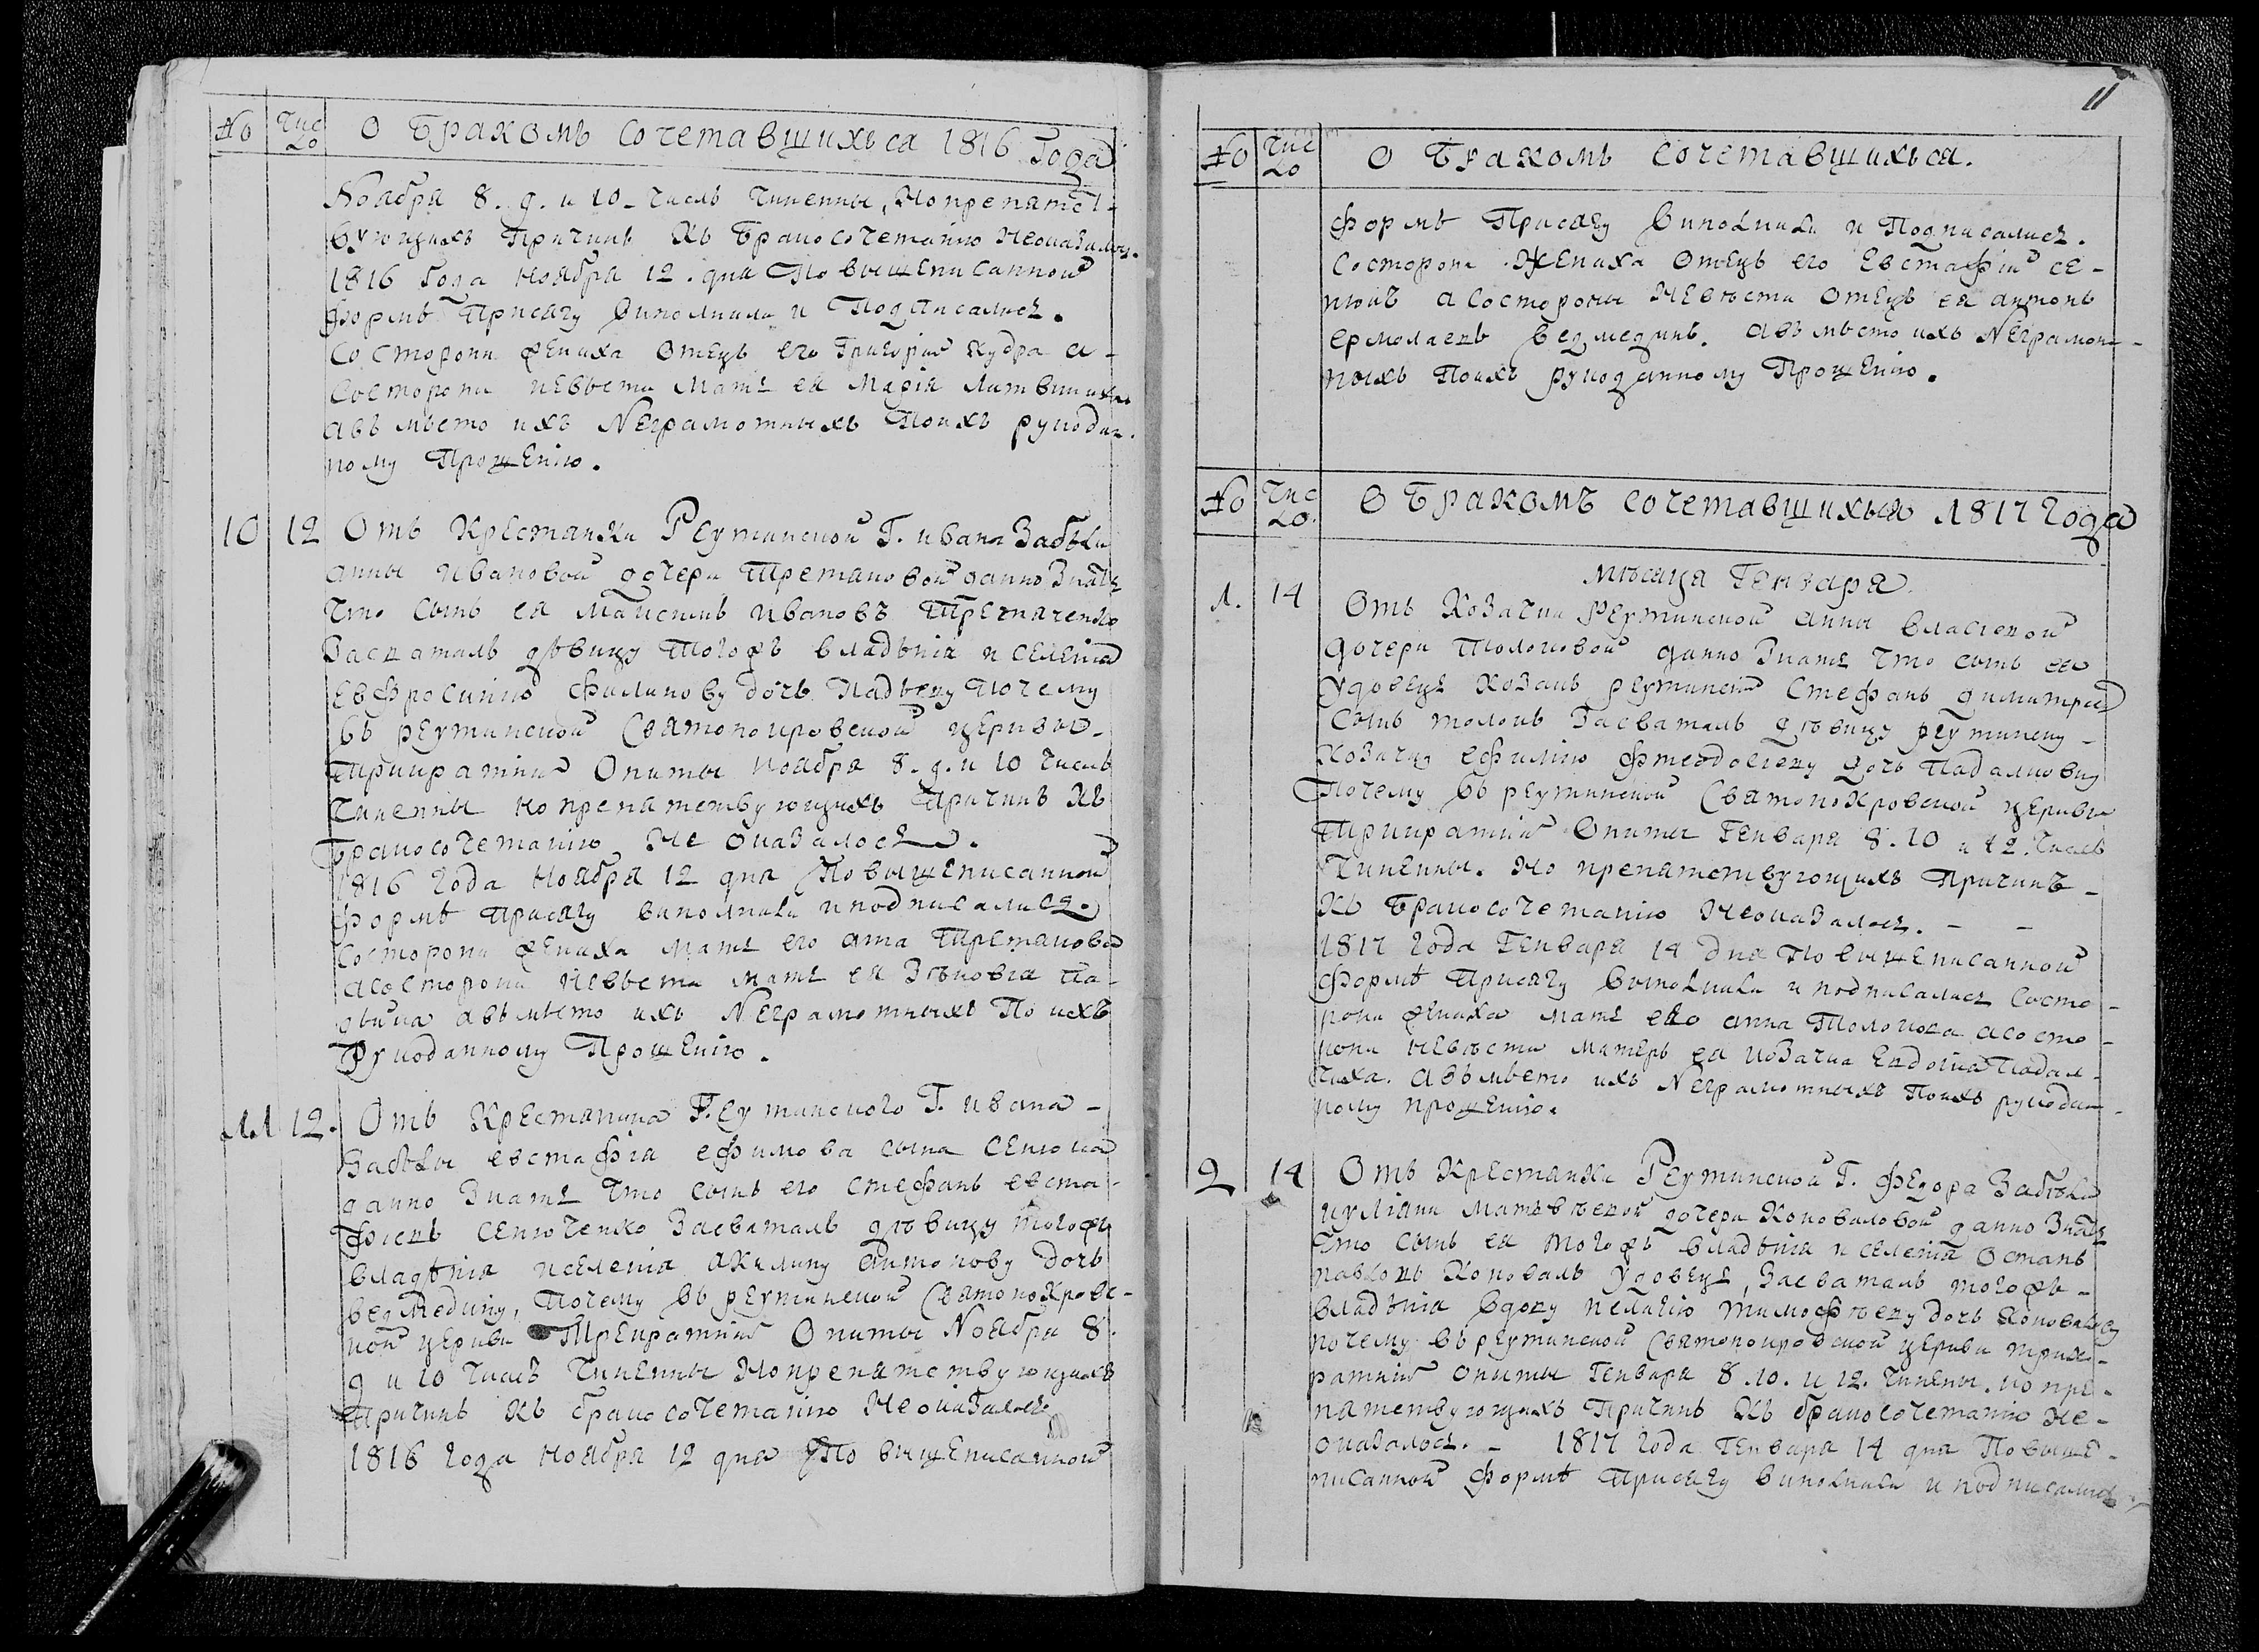 № Чис
ло
О Бракомъ Сочетавшихъся 1816 Года
Ноабра 8. 9. и 10- числъ чиненны, Но препятст-
вующихъ Причинъ Къ Бракосочетанію Неоказалось.
1816 Года Ноабра 12. дня По вышеписанной
формѣ Присягу Виполнили и Подписались.
Со сторони Жениха Отецъ его Григорій Кудра а-
Состорони невѣсти Мать ея Марія Литвиниха
авъ мѣсто ихъ Неграмотныхъ Поихъ рукодан-
ному Прошенію.
10 12 Отъ Крестянки Реутинской Г. ивана Забѣли
анны ивановой дочери Третяковой данно Знать
Что сынъ ея Максимъ ивановъ Третяченко
Засваталъ дѣвицу Тогожъ владѣнія и селенія
Евфросинію Филипову дочь Почему
Въ реутинской Святопокровской церкви
Трикратніи Опиты Ноабра 8. 9. и 10 числъ
чиненны но препятствующихъ Причинъ Къ
Бракосочетанію Не Оказалось.
1816 Года Ноабра 12 дня Повышеписанной
формѣ Присягу виполнили иподписались.
Состорони Жениха Мать его анна Третякова
асосторони Невѣсти Мать ея Зѣновія Па-
авъ мѣсто ихъ Неграмотныхъ По ихъ
Рукоданному Прошенію.
11 12. Отъ Крестянина Реутинского Г. ивана-
Забѣлы евстафія ефимова сына Сенюка
данно Знать Что сынъ его Стефанъ евста-
фіевъ Сенюченко Засваталъ дѣвицу тогожъ
владѣнія иселенія акилину антонову дочь
ведмедину, Почему Въ реутинской Святопокровс-
кой церкви Трикратніи Опиты Ноабра 8.
9 и 10 числъ Чиненны Но препятствующихъ
Причинъ Къ бракосочетанію Неоказалось
1816 Года Ноабра 12 дня По вышеписанной
11
№ Чис
ло
О Бракомъ Сочетавшихъся.
формѣ Присягу Виполнили и Подписались.
Состорони Жениха Отецъ его Евстафій Се-
нюкъ а Состороны Невѣсти Отецъ ея антонъ
ермолаевъ Ведмединъ. авъ мѣсто ихъ Неграмот-
ныхъ Поихъ рукоданному Прошенію.
№ Чис
ло.
О Бракомъ сочетавшихъся 1817 года
мѣсяца Генваря
1. 14 Отъ Козачки Реутинской анны власіевой
дочери Толоковой данно Знать Что сынъ ея
удовецъ козакъ реутинскій Стефанъ димитріевъ
Сынъ толока Засваталъ дѣвицу реутинску-
Козачку ефимію феодосіеву дочь
Почему Въ реутинской Святопокровской церкви
Трикратніи Опиты Генваря 8. 10 и 12. числъ
Чиненны. Но препятствующихъ Причинъ-
Къ Бракосочетанію Неоказалось. - -
1817 года Генваря 14 дня По вышеписанной
формѣ Присягу Выполнили и подписались Состо-
рони Жениха мать его анна Толокова асосто-
рони Невѣсти матерь ея козачка Евдокія
авъ мѣсто ихъ Неграмотныхъ Поихъ рукодан-
ному прошенію.
2 14 Отъ Крестянки Реутинской Г. Федора Забѣли
иуліаны Матвѣевой дочери Коноваловой данно Знать
Что сынъ ея Тогожъ владѣнія и селенія Остапъ
павловъ Коновалъ удовецъ, Засваталъ тогожъ-
владѣнія Вдову пелагію тимофѣеву дочь Коновалову
почему въ реутинской Святопокровской церкви трик-
ратніи опиты Генваря 8. 10. и 12. чинены. но пре-
пятствующихъ Причинъ Къ бракосочетанію не-
оказалось. - 1817 Года Генваря 14 дня Повыше-
писанной формѣ Присягу виполнили и подписались